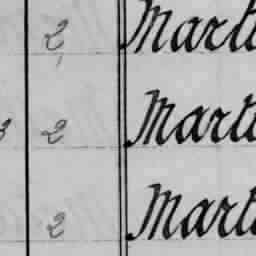 2 Mart
3 2 Mart
2 Mart